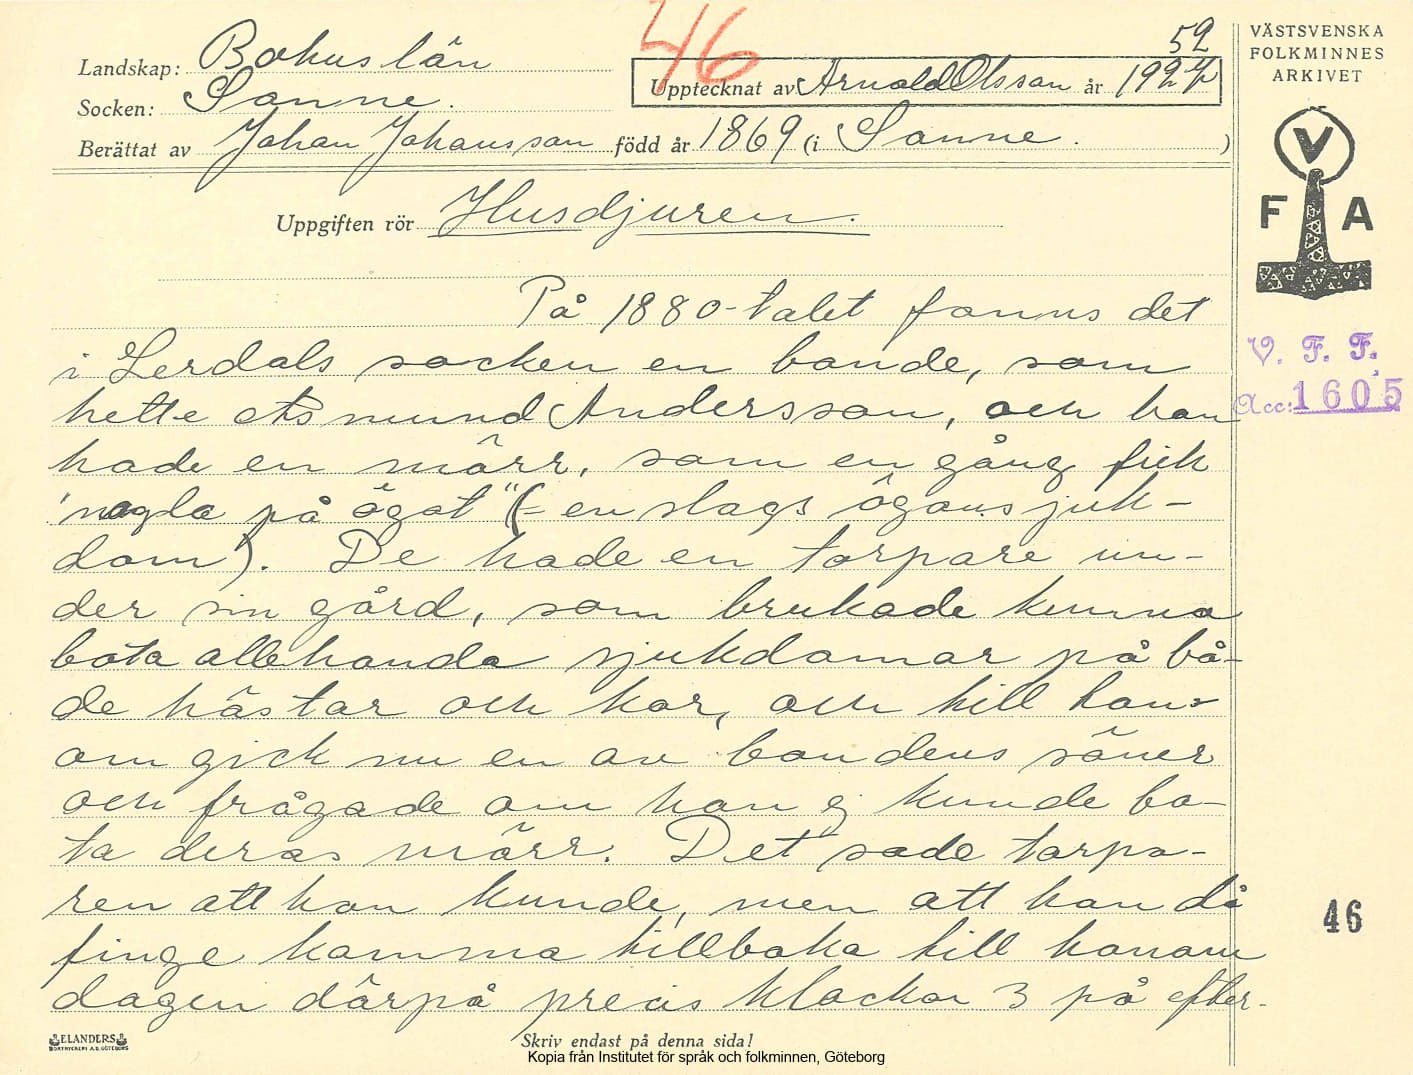 46
52
Landskap: Bohuslän
Upptecknat av Arnold Olsson år 1927
Socken: Sanne.
Berättat av Johan Johansson född år 1869 (i Sanne. )
Uppgiften rör Husdjuren.
På 1880-talet fanns det
i Lerdals socken en bonde, som
hette Asmund Andersson, och han
hade en märr, som en gång fick
"nagla på ögat" (= en slags ögonsjuk-
dom). De hade en torpare un-
der sin gård, som brukade kunna
bota allehanda sjukdomar på bå-
de hästar och kor, och till hon-
om gick nu en av bondens söner
och frågade om han ej kunde bo-
ta deras märr. Det sade torpa-
ren att han kunde, men att han då
finge komma tillbaka till honom
dagen därpå precis klockan 3 på efter-
ELANDERS
BOKTRYCKERI A.B. GÖTEBORG
Skriv endast på denna sida!
Kopia från Institutet för språk och folkminnen, Göteborg
VÄSTSVENSKA
FOLKMINNES
ARKIVET
V
F A
V. F. F.
Acc: 1605
46